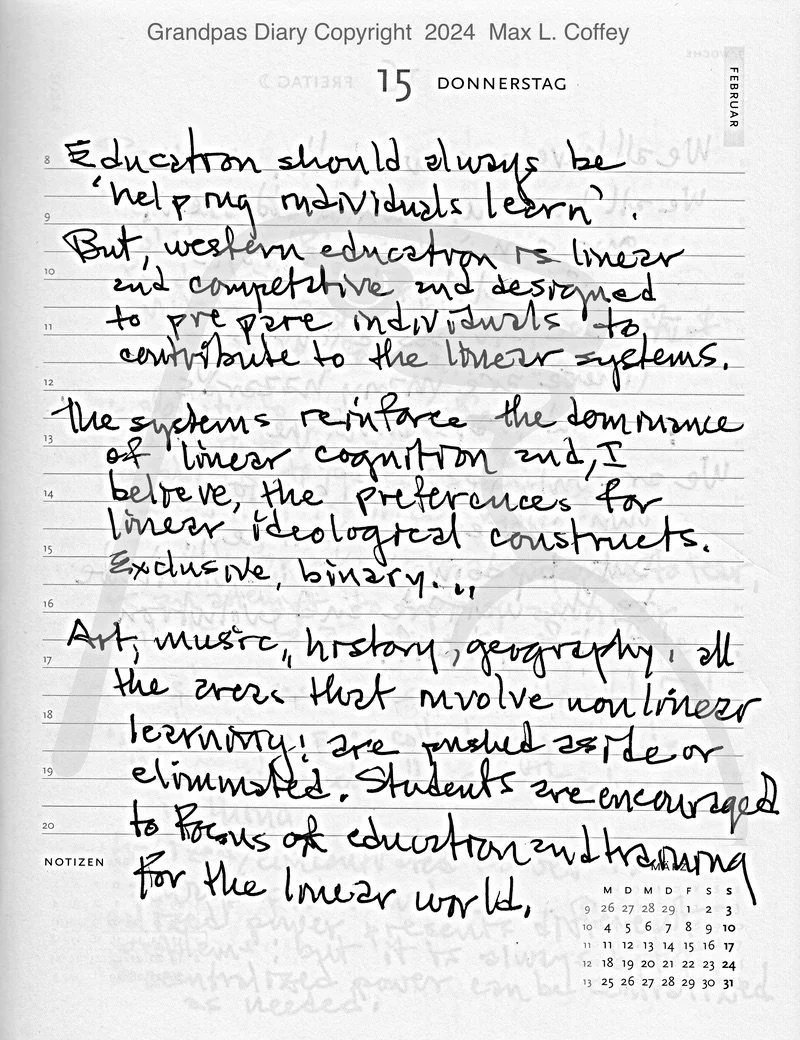 Grandpas Diary Copyright 2024 Max L. Coffey
15 DONNERSTAG
FEBRUAR
WOCHE
FREITAG
8 Education should always be
'helping individuals learn'.
9
But, western education is linear
10
and competitive and designed
11 to prepare individuals to
contribute to the linear systems.
12
The systems reinforce the dominance
13
of linear cognition and, I
14 believe, the preferences for
linear ideological constructs.
15
Exclusive, binary...
16
Art, music, history, geography, all
17
the areas that involve nonlinear
18
learning, are pushed aside or
19 eliminated. Students are encouraged
20 to focus of education and training
NOTIZEN
for the linear world.
MÄRZ
M D M D F S S
9 26 27 28 29 1 2 3
10 4 5 6 7 8 9 10
11 11 12 13 14 15 16 17
12 18 19 20 21 22 23 24
13 25 26 27 28 29 30 31